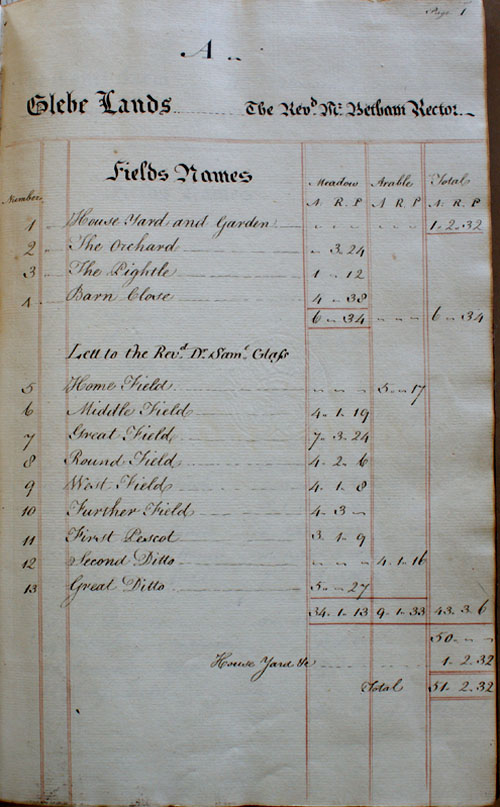 Page 1
A
Glebe Lands The Revd. Mr. Betham Rector
Fields Names Meadow Arable Total
Number A R P A R P A R P
1 House Yard and Garden - - - - - - 1 - 2 - 32
2 The Orchard - 3 - 24
3 The Pightle 1 - - 12
4 Barn Close 4 - - 38
6 - - 34 - - - 6 - - 34
Lett to the Revd. Dr. Saml. Glass
5 Home Field - - - 5 - - 17
6 Middle Field 4 - 1 - 19
7 Great Field 7 - 3 - 24
8 Round Field 4 - 2 - 6
9 West Field 4 - 1 - 8
10 Further Field 4 - 3 -
11 First Pescot 3 - 1 - 9
12 Second Ditto - - - 4 - 1 - 16
13 Great Ditto 5 - - 27
34 - 1 - 13 9 - 1 - 33 43 - 3 - 6
50 - - -
House Yard &c 1 - 2 - 32
Total 51 - 2 - 32